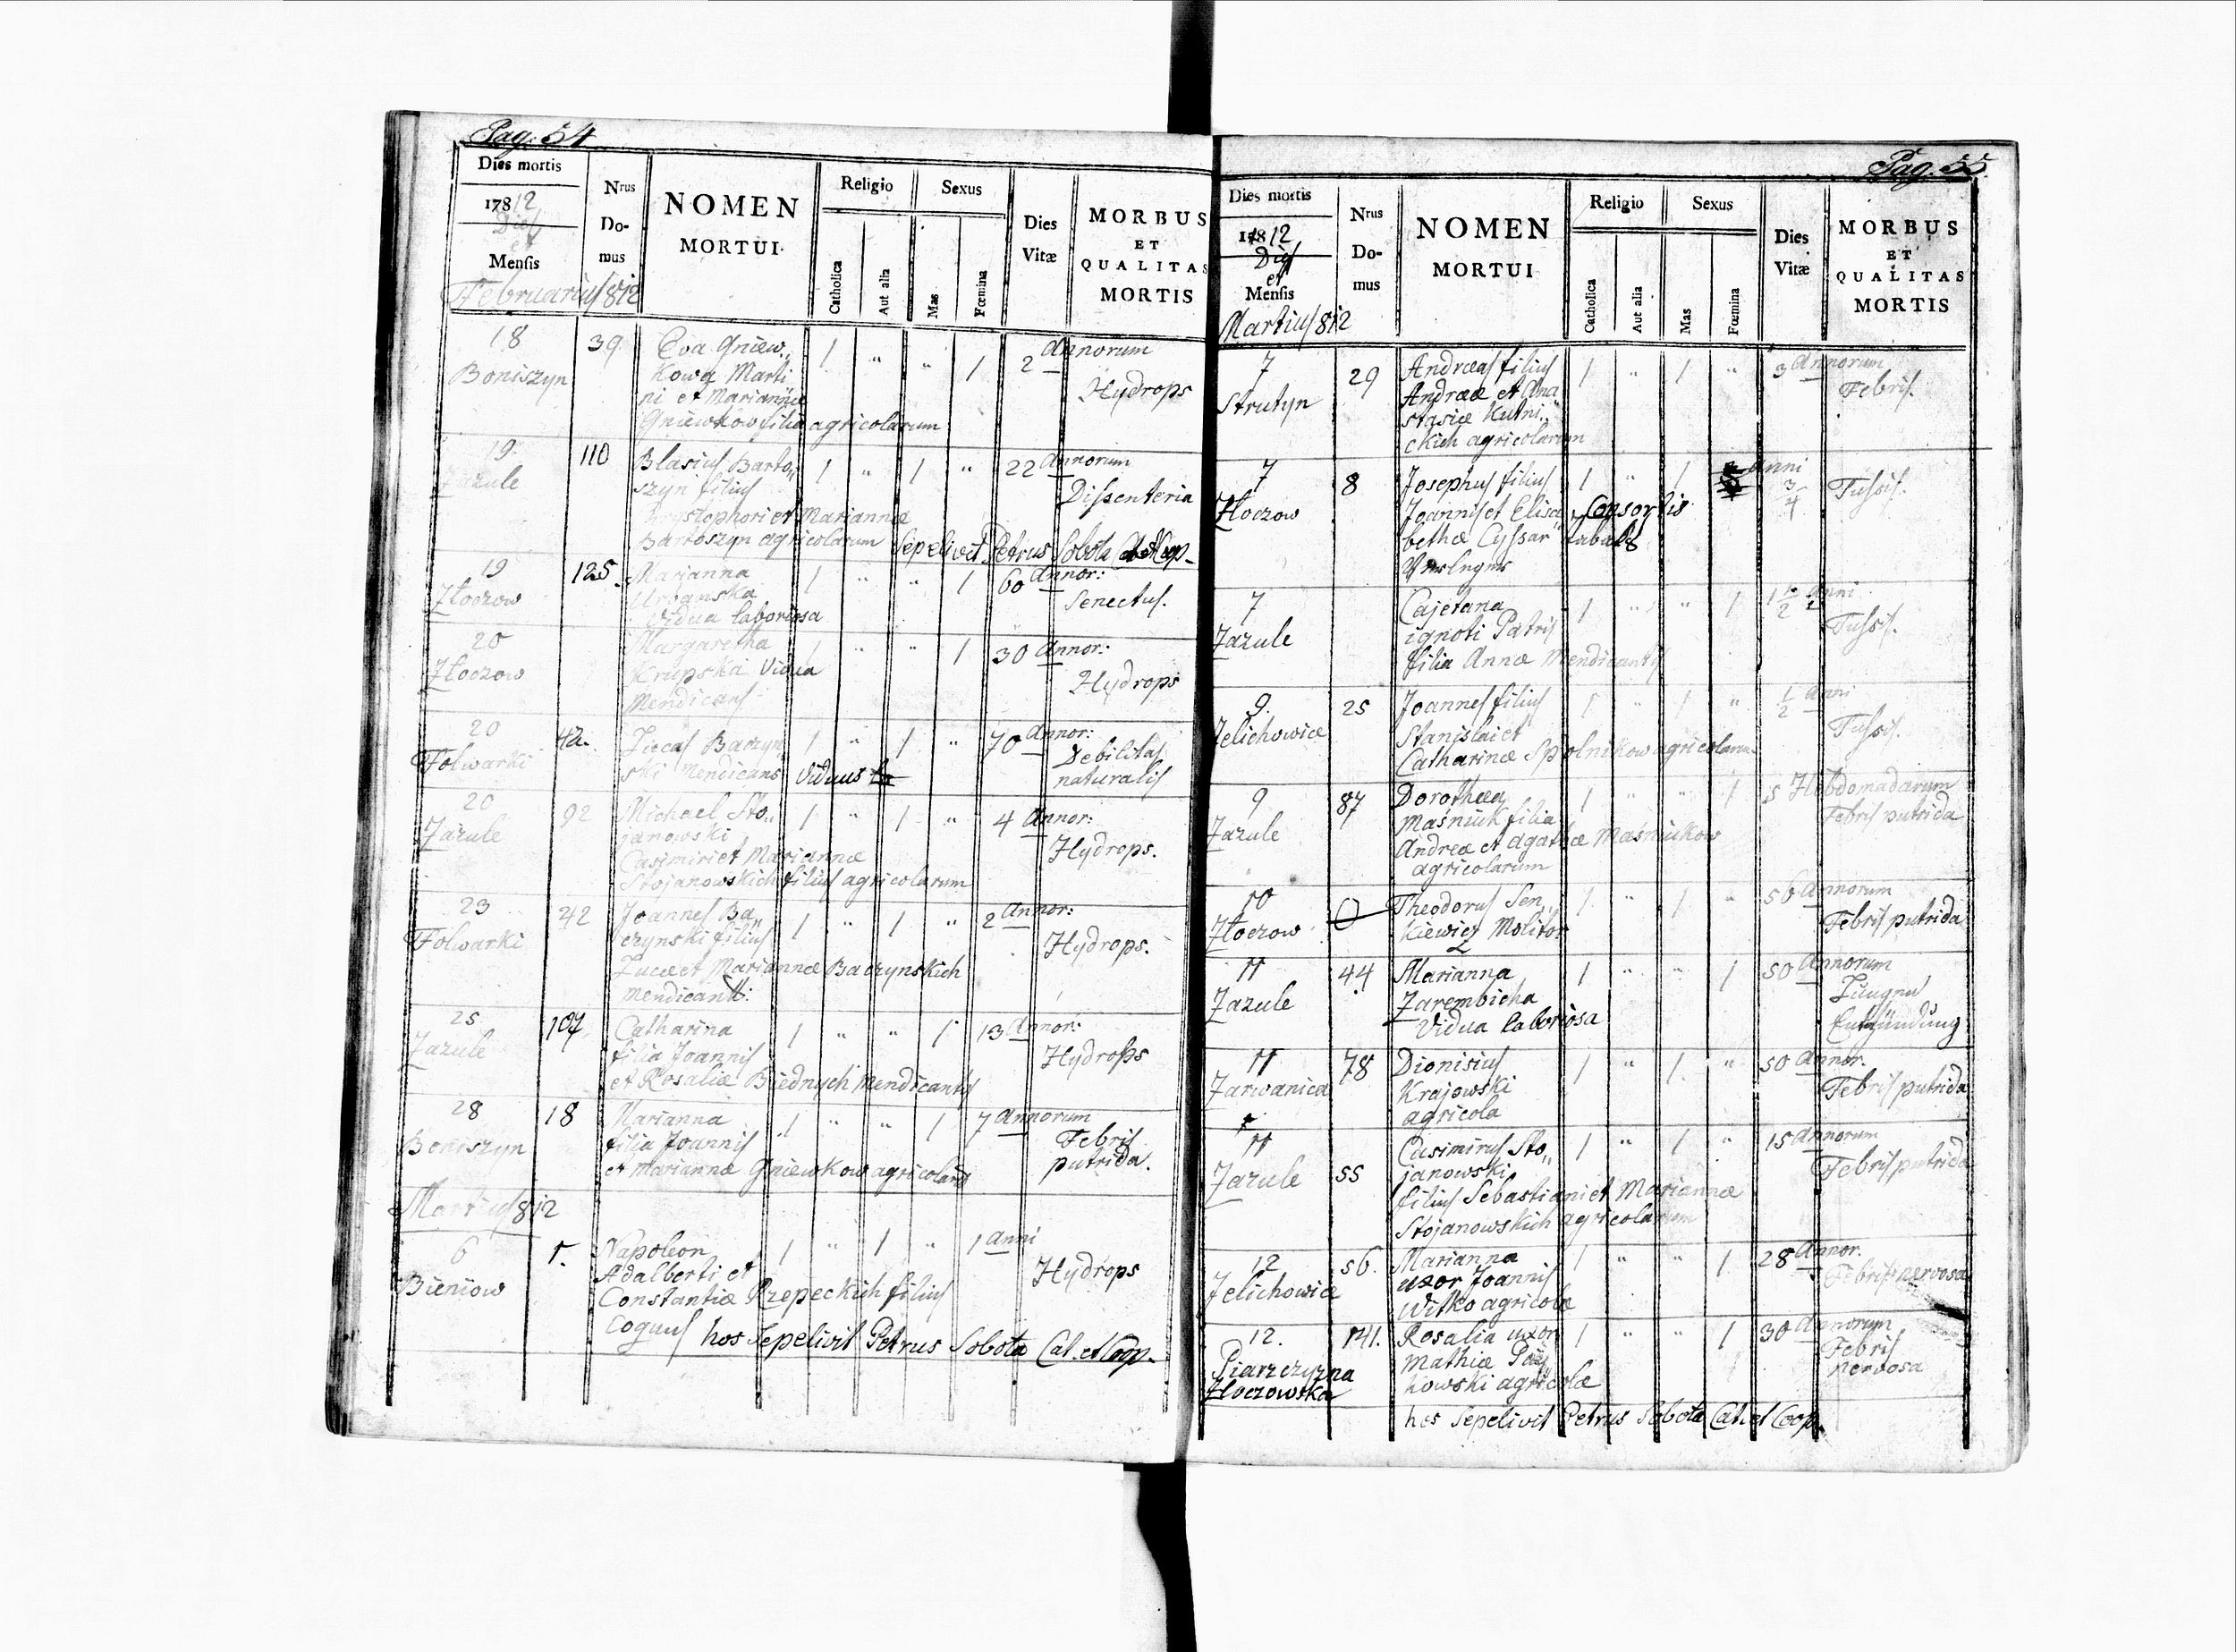 Pag. 54
Dies mortis
1812
Dies
et
Mensis
Februarius 812
Nrus
Do-
mus
NOMEN
MORTUI
Religio
Catholica
Aut alia
Sexus
Mas
Fœmina
Dies
Vitæ
MORBUS
ET
QUALITAS
MORTIS
18 39 Eva Gniew„ 1 „ „ 1 2 Annorum
Boniszyn kowa Marti
ni et Mariannæ Hydrops
Gniewkow filia agricolarum
19 110 Blasius Barto„ 1 „ 1 „ 22 Annorum
Zazule szyn filius Dissenteria
Chrystophori et Mariannæ
Bartoszyn agricolarum Sepelivit Petrus Sobota
19 125. Marianna 1 „ „ 1 60 Annor:
Złoczow Urbanska Senectus.
Vidua laboriosa
20 Margaretha 1 „ „ 1 30 Annor:
Złoczow Krupska Vidua Hydrops
Mendicans
20 42. Lucas Baczyn„ 1 „ 1 „ 70 Annor:
Folwarki ski Mendicans viduus Debilitas
naturalis
20 92 Michael Sto„ 1 „ 1 „ 4 Annor:
Zazule janowski
Casimiri et Mariannæ Hydrops.
Stojanowskich filius agricolarum
23 42 Joannes Ba„ 1 „ 1 „ 2 Annor:
Folwarki czynski filius Hydrops.
Lucæ et Mariannæ Baczynskich
Mendicant:
25 107 Catharina 1 „ „ 1 13 Annor:
Zazule filia Joannis Hydrops
et Rosaliæ Biednych Mendicantis
28 18 Marianna 1 „ „ 1 7 Annorum
Boniszyn filia Joannis Febris
et Mariannæ Gniewkow agricolarum putrida.
Martius 812
6 1. Napoleon 1 „ 1 „ 1 Anni
Bieniow Adalberti et Hydrops
Constantiæ Rzepeckich filius
Coquus hos Sepelivit Petrus Sobota Cat. et Coop.
Pag. 55.
Dies mortis
1812
Dies
et
Mensis
Martius 812
Nrus
Do-
mus
NOMEN
MORTUI
Religio
Catholica
Aut alia
Sexus
Mas
Fœmina
Dies
Vitæ
MORBUS
ET
QUALITAS
MORTIS
7 29 Andreas filius 1 „ 1 „ 3 Annorum
Strutyn Andreæ et Ana Febris.
stasiæ Kutni„
ckich agricolarum
7 8 Josephus filius 1 „ 1 Anni
Złoczow Joannis et Elisa 3/4 Tussis.
bethæ Cyssar Consortis
7 Cajetana 1 „ „ 1 1 1/2 Anni
Zazule ignoti Patris Tussis.
filia Annæ Mendicantis
9. 25 Joannes filius 1 „ 1 „ 1/2 Anni
Jelichowice Stanislai et Tussis.
Catharinæ Spolnikow agricolarum
9 87 Dorothea 1 „ „ 1 5 Hebdomadarum
Zazule Maśniuk filia Febris putrida
Andreæ et Agathæ Maśniukow
agricolarum
10 0 Theodorus Sen„ 1 „ 1 „ 56 Annorum
Złoczow kiewicz Molitor Febris putrida
11 44 Marianna 1 „ „ 1 50 Annorum
Zazule Zarembicha Lungen
Vidua laboriosa Entzündung
11 78 Dionisius 1 „ 1 „ 50 Annor.
Zarwanica Krajowski Febris putrida
agricola
11 55 Casimirus Sto„ 1 „ 1 „ 15 Annorum
Zazule janowski Febris putrida
filius Sebastiani et Mariannæ
Stojanowskich agricolarum
12 56. Marianna 1 „ „ 1 28 Annor.
Jelichowice uxor Joannis Febris nervosa
Witko agricolæ
12. 141. Rosalia uxor 1 „ „ 1 30 Annorum
Piarzczyzna Mathiæ Febris
Złoczowska kowski agricolæ nervosa
hos Sepelivit Petrus Sobota Cat. et Coop.